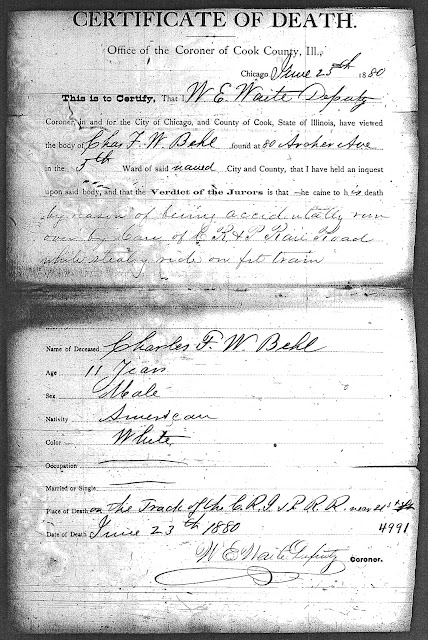 CERTIFICATE OF DEATH.
Office of the Coroner of Cook County, Ill.,
Chicago June 25th 1880
This is to Certify, That I W E Waite Deputy
Coroner, in and for the City of Chicago, and County of Cook, State of Illinois, have viewed
the body of Chas F. W. Behl found at 80 Archer Ave
in the 5th Ward of said named City and County, that I have held an inquest
upon said body, and that the Verdict of the Jurors is that he came to his death
by reason of being accidentally run
over by Cars of C R I & P Rail Road
while stealing ride on frt train
Name of Deceased, Charles F. W. Behl
Age 11 Years
Sex Male
Nativity American
Color White
Occupation
Married or Single
Place of Death on the Track of the C. R. I & P. R. R. near 21st
Date of Death June 23th 1880 4991
W E Waite Deputy Coroner.